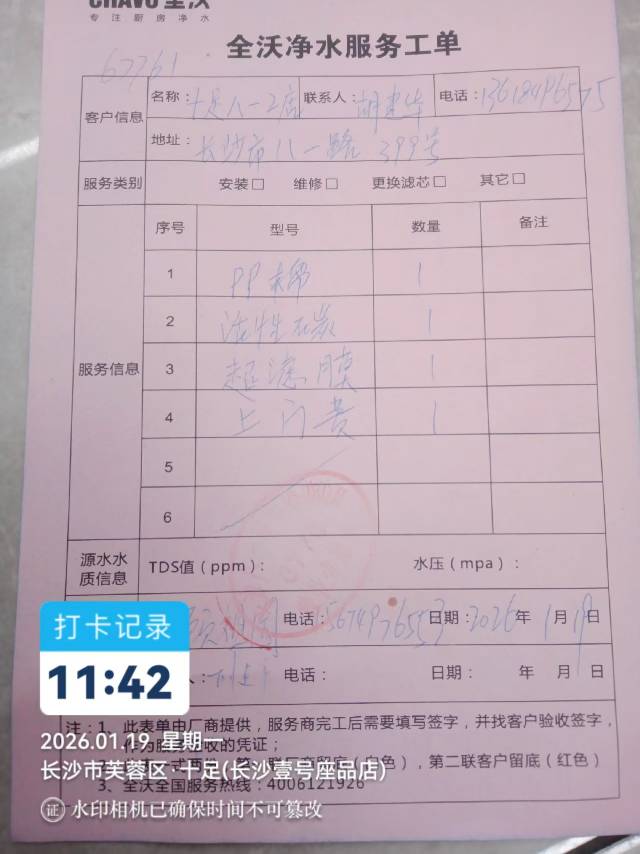 CHAVO 全沃
专注厨房净水
全沃净水服务工单
67761
客户信息
名称：十足八一2店 联系人：胡建华 电话：13618496575
地址：长沙市八一路 399号
服务类别 安装□ 维修□ 更换滤芯□ 其它□
服务信息
序号 型号 数量 备注
1 PP棉 1
2 活性炭 1
3 超滤膜 1
4 上门费 1
5
6
源水水质信息 TDS值（ppm）： 水压（mpa）：
电话：15674976553 日期：2026年 1月19日
电话： 日期： 年 月 日
注：1、此表单由厂商提供，服务商完工后需要填写签字，并找客户验收签字，
作为服务验收的凭证；
色），第二联客户留底（红色）
3、全沃全国服务热线：4006121926
打卡记录
11:42
2026.01.19 星期一
长沙市芙蓉区·十足(长沙壹号座品店)
证 水印相机已确保时间不可篡改